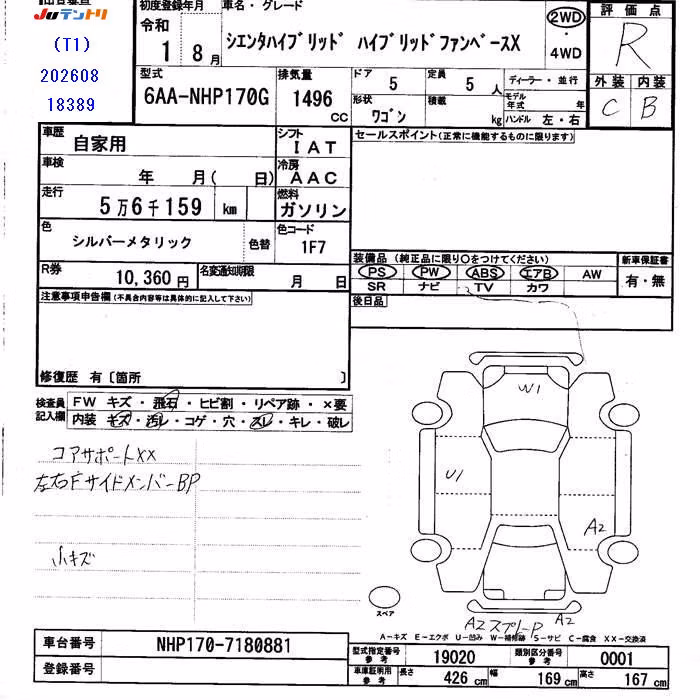 JUテントリ
(T1)
202608
18389
初度登録年月
令和
1 8月
車名・グレード
シエンタハイブリッド ハイブリッドファンベースX
2WD
・
4WD
評価点
R
外装 内装
C B
型式
6AA-NHP170G
排気量
1496
CC
ドア
5
定員
5 人
形状
ワゴン
積載
kg
ディーラー・並行
モデル年式 年
ハンドル 左・右
車歴
自家用
シフト
IAT
車検
年 月( 日)
冷房
AAC
走行
5万6千159 km
燃料
ガソリン
色
シルバーメタリック
色替
色コード
1F7
R券
10,360円
名変通知期限
月 日
セールスポイント(正常に機能するものに限ります)
装備品 (純正品に限り○をつけてください)
PS PW ABS エアB AW
SR ナビ TV カワ
新車保証書
有・無
後日品
注意事項申告欄(不具合内容等は具体的に記入して下さい)
修復歴 有〔箇所 〕
検査員記入欄
FW キズ・飛石・ヒビ割・リペア跡・×要
内装 キズ・汚レ・コゲ・穴・スレ・キレ・破レ
コアサポートXX
左右FサイドメンバーBP
小キズ
W1
U1
A2
スペア
A2スプレーP
A2
A-キズ E-エクボ U-凹み W-補修跡 S-サビ C-腐食 XX-交換済
車台番号
NHP170-7180881
登録番号
型式指定番号
参考
19020
類別区分番号
参考
0001
車庫証明用
参考
長さ
426 cm
幅
169 cm
高さ
167 cm